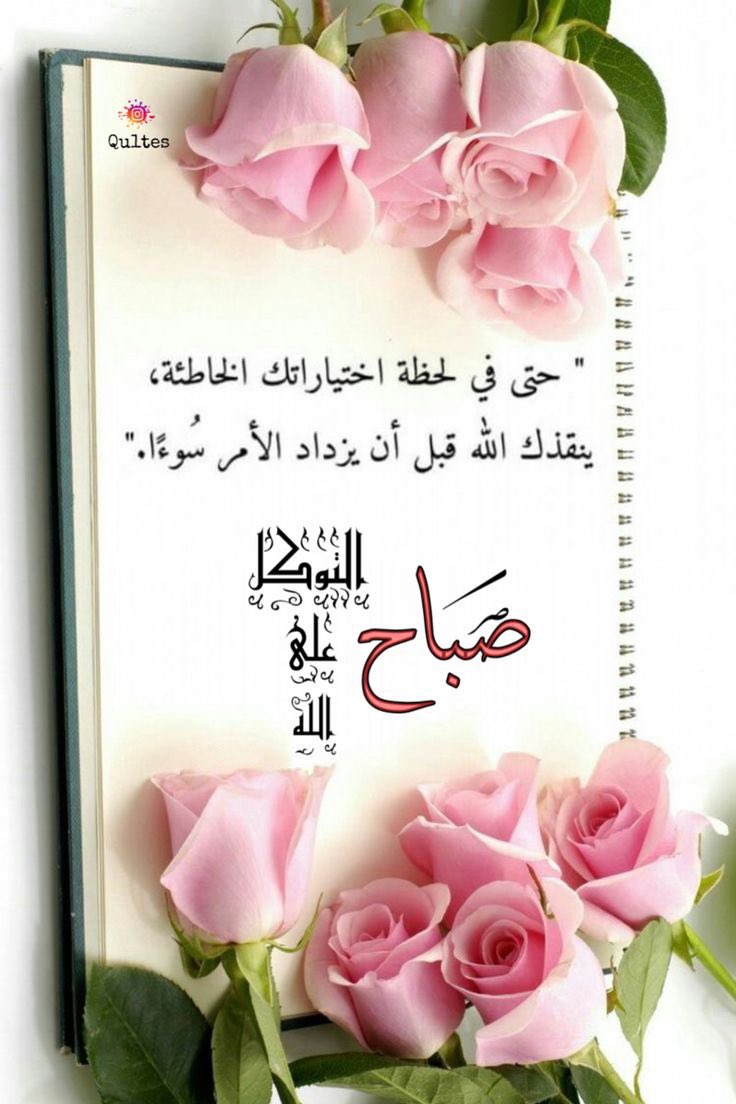 Qultes
" حتى في لحظة اختياراتك الخاطئة،
ينقذك الله قبل أن يزداد الأمر سُوءًا."
صباح
التوكل
على
الله